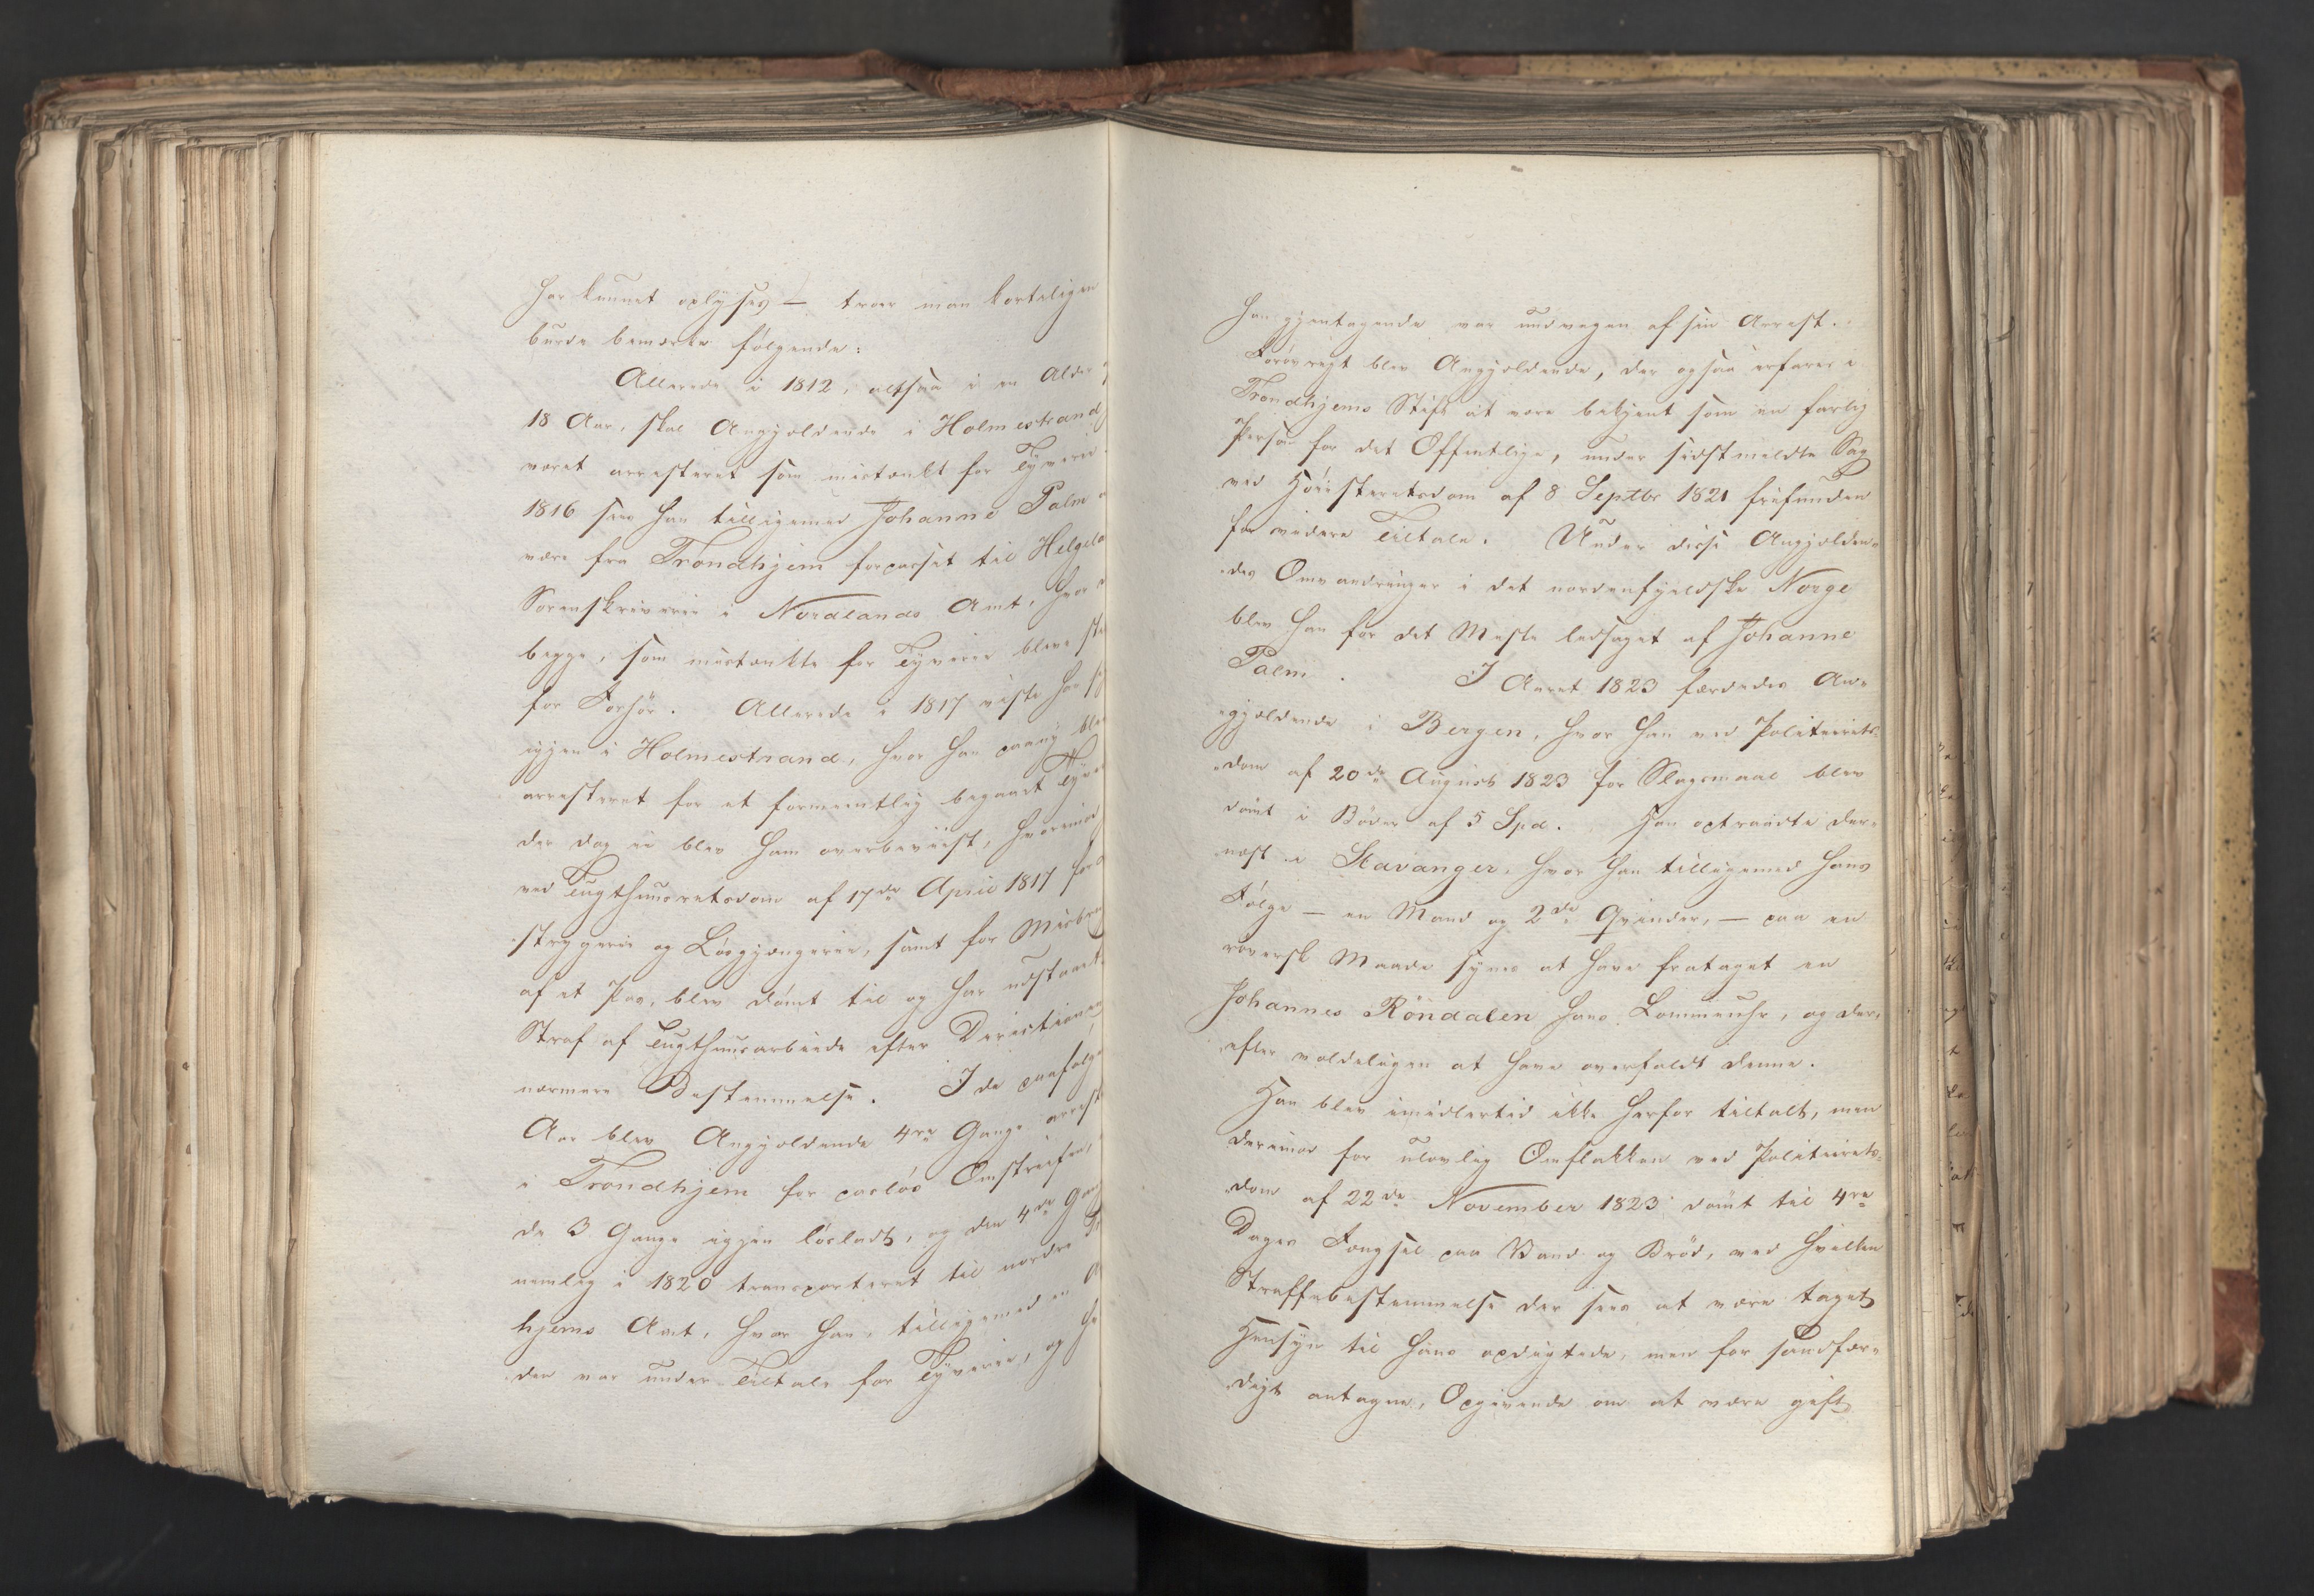 har kunnet oplyses — troer man korteligen
burde bemærke følgende:
Allerede i 1812, altsaa i en Alder
18 Aar, skal Angjældende i Holmestrand
været arresteret som mistænkt for Tyverie
1816 sees han tilligemed Johanne Palm
være fra Trondhjem forpasset til Helgela
Sorenskriverie i Nordlands Amt, hvor
begge, som mistænkte for Tyverier bleve
for Forhør. Allerede i 1817 viste han
igjen i Holmestrand, hvor han paany blev
arresteret for et formeentlig begaaet Tyve
der dog ei blev ham overbeviist, hvorimod
ved Tugthuusretsdom af 17de April 1817 for
strygerie og Løsgjængerie, samt for Misbru
af et Pas, blev dømt til og har udstaaet
Straf af Tugthuusarbeide efter Directionens
nærmere Bestemmelse. I de paafølge
Aar blev Angjældende 4re Gange arrest
i Trondhjem for pasløs Omstreifen,
de 3 Gange igjen løsladt, og den 4de Gang
nemlig i 1820 transporteret til nordre
hjems Amt, hvor han, tilligemed en
den var under Tiltale for Tyverie, og
han gjentagende var undvegen af sin Arrest.
Forøvrigt blev Angjældende, der ogsaa erfares i
Trondhjems Stift at være bekjent som en farlig
Person for det Offentlige, under sidstmeldte Sag
ved Høiesteretsdom af 8 Septbr 1821 frifunden
for videre Tiltale. Under disse Angjælden-
des Omvandringer i det nordenfjeldske Norge
blev han for det Meste ledsaget af Johanne
Palm. I Aaret 1823 færdedes An-
gjældende i Bergen, hvor han ved Politierets-
dom af 20de August 1823 for Slagsmaal blev
dømt i Bøder af 5 Spd. Han optraadte der-
næst i Stavanger, hvor han tilligemed hans
Følge — en Mand og 2de Qvinder, — paa en
røversk Maade synes at have frataget en
Johannes Röndalen hans Lommeuhr, og der-
efter voldeligen at have overfaldt denne.
Han blev imidlertid ikke herfor tiltalt, men
derimod for ulovlig Omflakken ved Politierets-
dom af 22de November 1823 dømt til 4re
Dages Fængsel paa Vand og Brød, ved hvilken
Straffebestemmelse der sees at være taget
Hensyn til hans opdigtede, men for sandfær-
digt antagne, Opgivende om at være gift